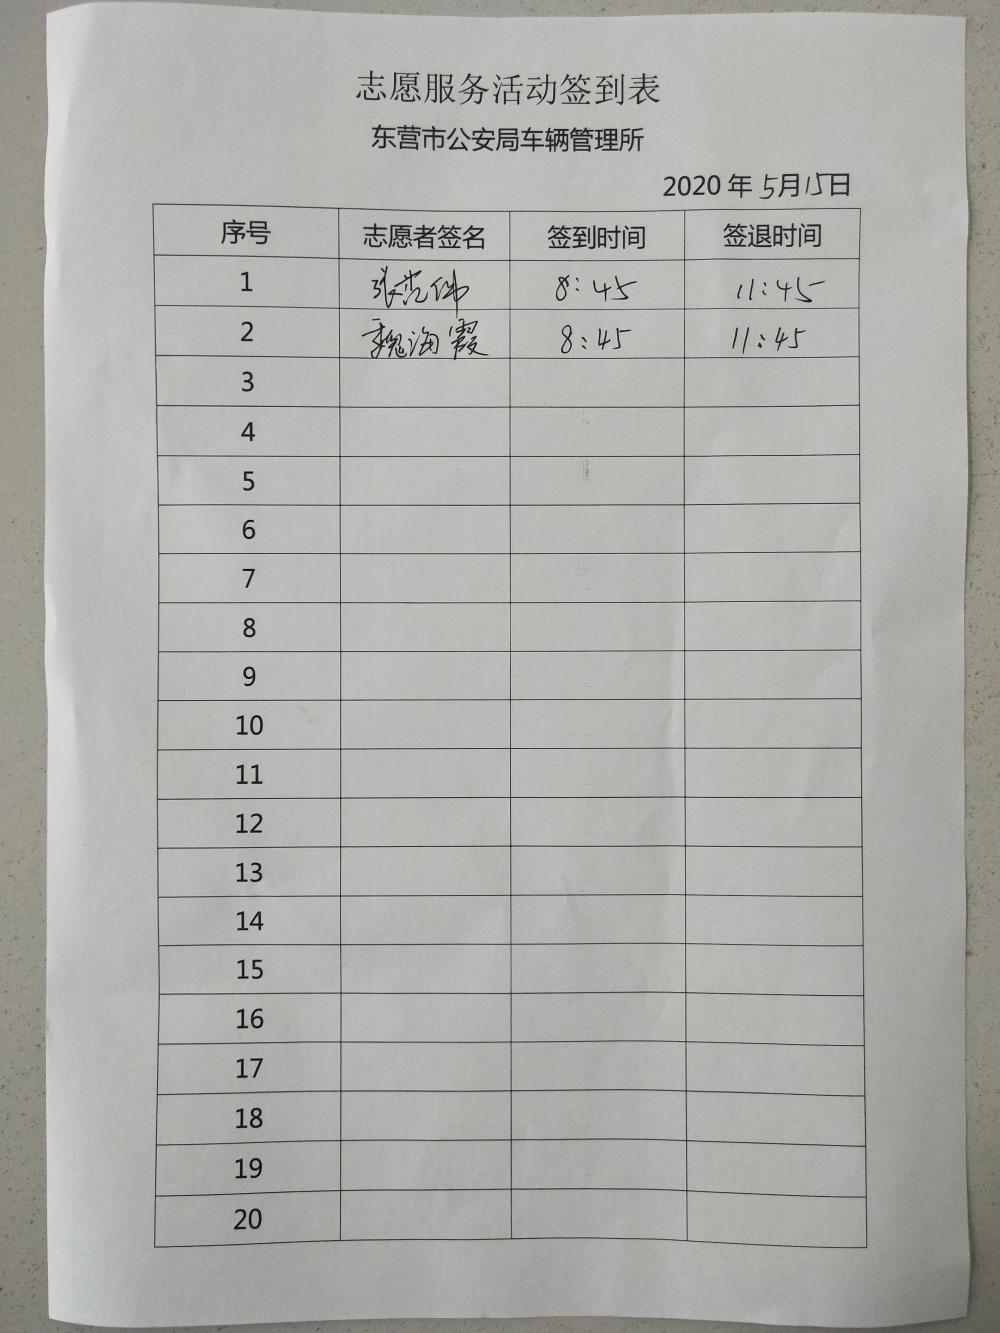 志愿服务活动签到表
东营市公安局车辆管理所
2020年5月15日
序号 志愿者签名 签到时间 签退时间
1 张范伟 8:45 11:45
2 魏海霞 8:45 11:45
3
4
5
6
7
8
9
10
11
12
13
14
15
16
17
18
19
20